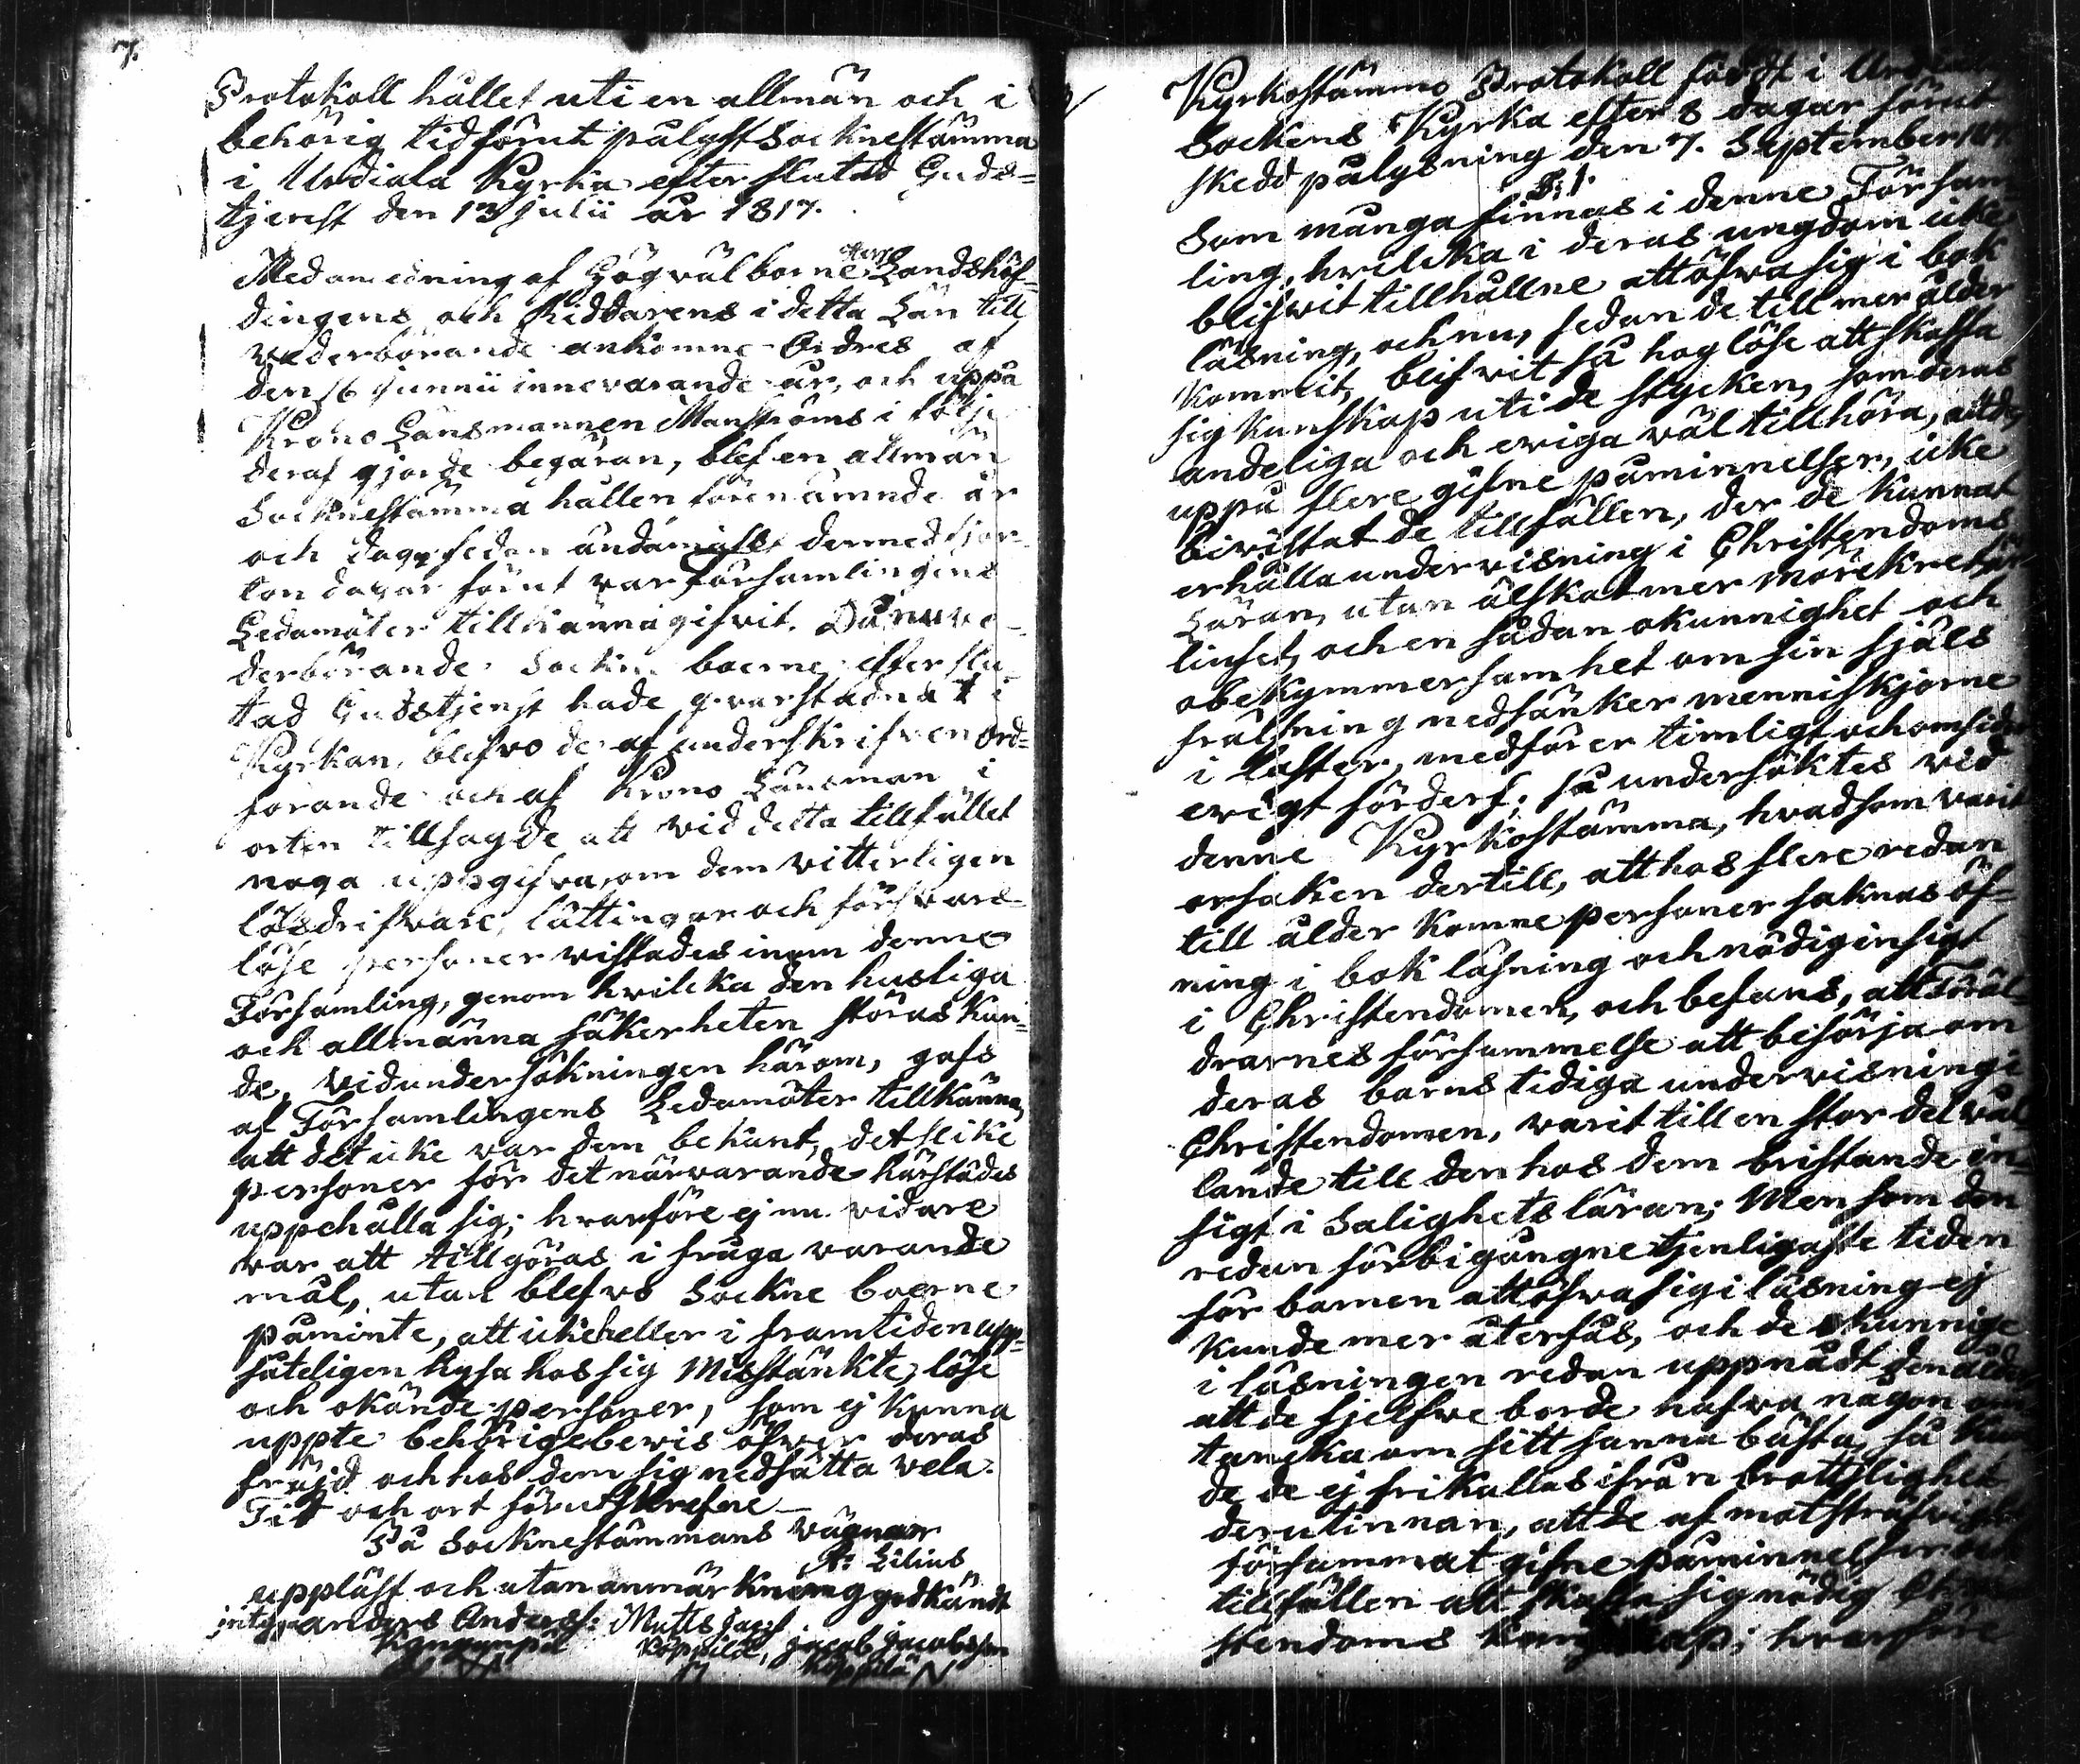 7.
Protokoll hållet uti en allmän och i
behörig tid förut pålyst Socknestämma
i Urdiala Kyrka efter slutad Guds-
tjenst den 13 Julii år 1817.
Med anledning af Högvälborne Herr Landshöf-
dingens och Riddarens i detta Län till
vederbörande ankomne Ordres af
den 16 Junii innevarande år, och uppå
Krono Länsmannen Manströms i följe
deraf gjorde begäran, blef en allmän
Socknestämma hållen förenämnde år
och dag, sedan ändamålet dermed fjor-
ton dagar förut var församlingens
Ledamöter tillkännagifvit. Då nu ve-
derbörande Sockne boerne efter slu-
tad Gudstjenst hade qvarstadnat i
Kyrkan, blefvo de af underskrifven Ord-
förande och af Krono Länsman i
orten tillsagde att vid detta tillfället
noga uppgifva, om dem vitterligen
lösdrifvare, lättingar och försvars-
löse personer vistades inom denne
Församling, genom hvilcka den husliga
och allmänna säkerheten störas kun-
de. Vid undersökningen härom, gafs
af Församlingens Ledamöter tillkänna,
att det icke var dem bekant, det slike
personer för det närvarande härstädes
uppehålla sig; hvarföre ej nu vidare
var att tillgöras i fråga varande
mål, utan blefvo Sockne boerne
påminte, att icke heller i framtiden upp-
såteligen hysa hos sig Misstänkte, löse
och okände personer, som ej kunna
uppte behörige bevis öfver deras
fräjd och hos dem sig nedsätta vela.
Tid och ort förutskrefne
På Socknestämmans vägnar
A: Lilius
uppläst och utan anmärkning godkändt
intyga Anders Anders: Matts Jacobs
Köppilä, Jacob Jacobsson
Köppilä
Kyrkostämmo Protokoll fördt i Urdiala
Sockens Kyrka efter 8 dagar förut
skedd pålysning den 7. September 1817.
§. 1
Som många finnas i denne Försam-
ling, hvilcka i deras ungdom icke
blifvit tillhållne att öfva sig i bok
läsning, och nu, sedan de till mer ålder
kommit, blifvit så hoglöse att skaffa
sig kunskap uti de stycken, som deras
andeliga och eviga väl tillhöra, att de,
uppå flere gifne påminnelser, icke
bivistat de tillfällen, der de kunnat
erhålla undervisning i Christendoms
Läran, utan älskat mer mörkret än
liuset, och en sådan okunnighet och
obekymmersamhet om sin själs
frälsning nedsänker menniskjorne
i laster, medför en timligt och omsider
evigt förderf; så undersöktes vid
denne Kyrkostämma, hvad som varit
orsaken dertill, att hos flere redan
till ålder komne personer saknas öf-
ning i bok läsning och nödig insigt
i Christendomen, och befans, att Föräl-
drarnes försummelse att besörja om
deras barns tidiga undervisning i
Christendomen, varit till en stor del vål-
lande till den hos dem bristande in-
sigt i Salighets läran; Men som den
redan förbigångne tjenligaste tiden
för barnen att öfva sig i läsning ej
kunde mer återfås, och de okunnige
i läsningen redan uppnådt den ålder
att de sjelfve borde hafva någon om-
tancka om sitt sanna bästa, så kun-
de de ej frikallas ifrån brottslighet
derutinnan, att de af motsträfvighet
försummat gifne påminnelser och
tillfällen att skaffa sig nödig Chri-
stendoms kunskap; hvarföre